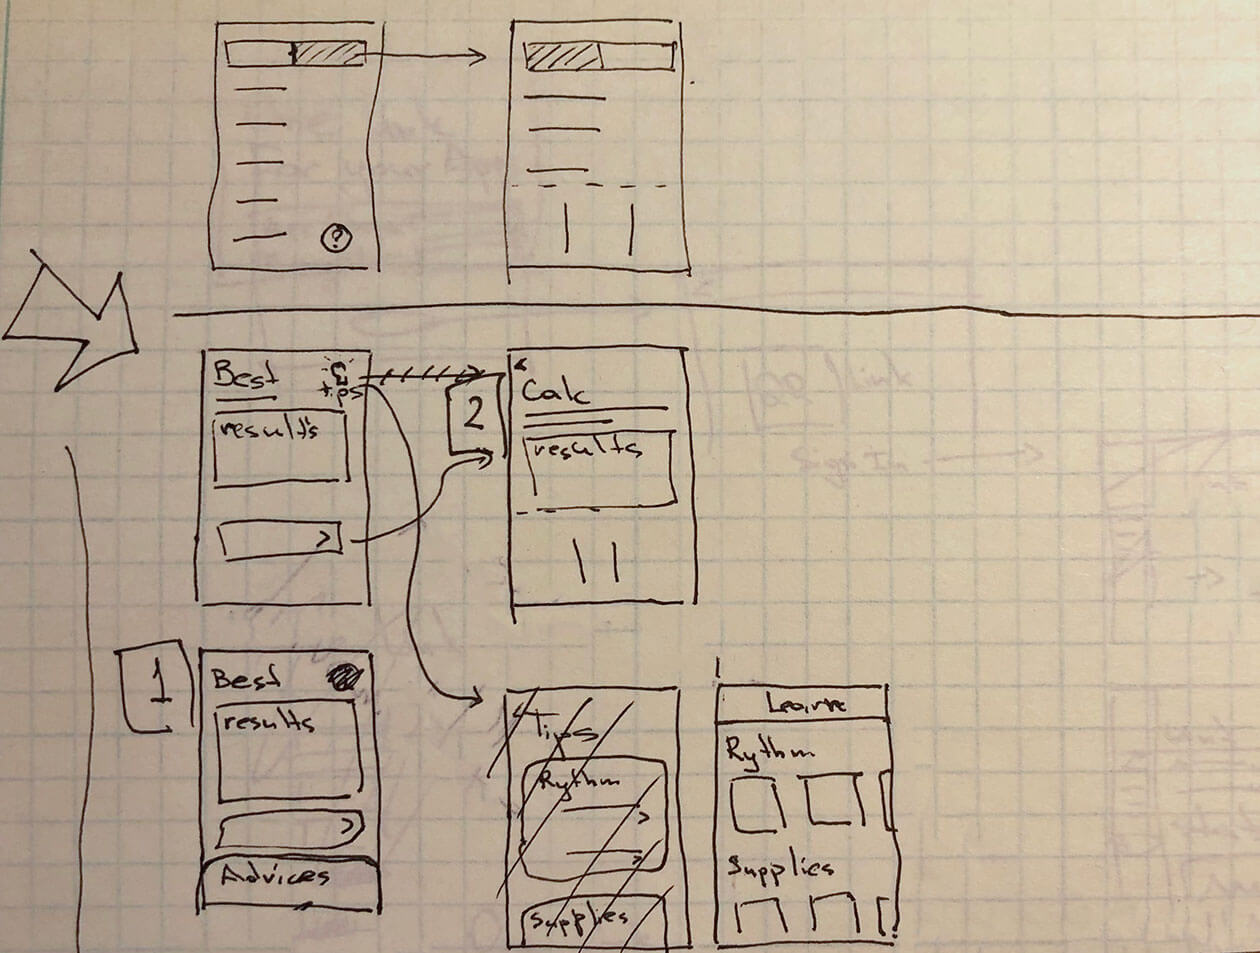 ?
Best
tips
results
2
Calc
results
1
Best
results
Advices
Tips
Rythm
Supplies
Learn
Rythm
Supplies